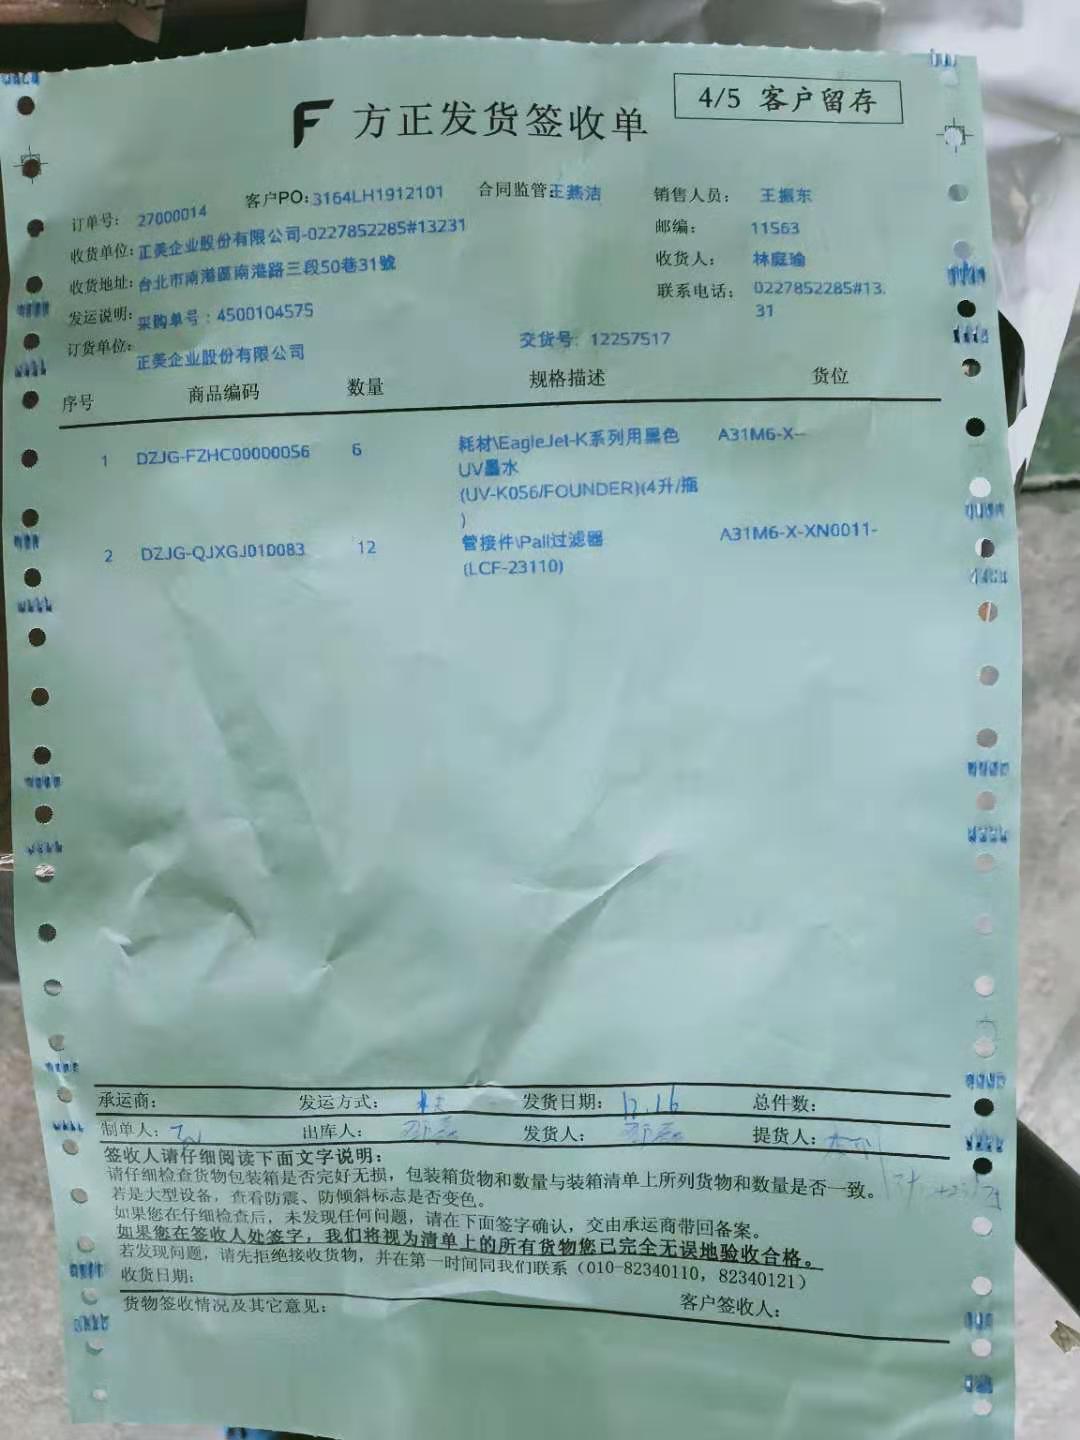 4/5 客户留存
F 方正发货签收单
订单号: 27000014 客户PO:3164LH1912101 合同监管:王燕洁 销售人员: 王振东
收货单位:正美企业股份有限公司-0227852285#13231 邮编: 11563
收货地址:台北市南港區南港路三段50巷31號 收货人: 林庭瑜
发运说明:采购单号:4500104575 联系电话: 0227852285#13.
31
订货单位:正美企业股份有限公司 交货号: 12257517
序号 商品编码 数量 规格描述 货位
1 DZJG-FZHC00000056 6 耗材\EagleJet-K系列用黑色 A31M6-X--
UV墨水
(UV-K056/FOUNDER)(4升/瓶
)
2 DZJG-QJXGJ010083 12 管接件\Pall过滤器 A31M6-X-XN0011-
(LCF-23110)
承运商: 发运方式: 发货日期: 12.16 总件数:
制单人: 出库人: 发货人: 提货人:
签收人请仔细阅读下面文字说明:
请仔细检查货物包装箱是否完好无损,包装箱货物和数量与装箱清单上所列货物和数量是否一致。
若是大型设备,查看防震、防倾斜标志是否变色。
如果您在仔细检查后,未发现任何问题,请在下面签字确认,交由承运商带回备案。
如果您在签收人处签字,我们将视为清单上的所有货物您已完全无误地验收合格。
若发现问题,请先拒绝接收货物,并在第一时间同我们联系(010-82340110,82340121)
收货日期:
货物签收情况及其它意见: 客户签收人: